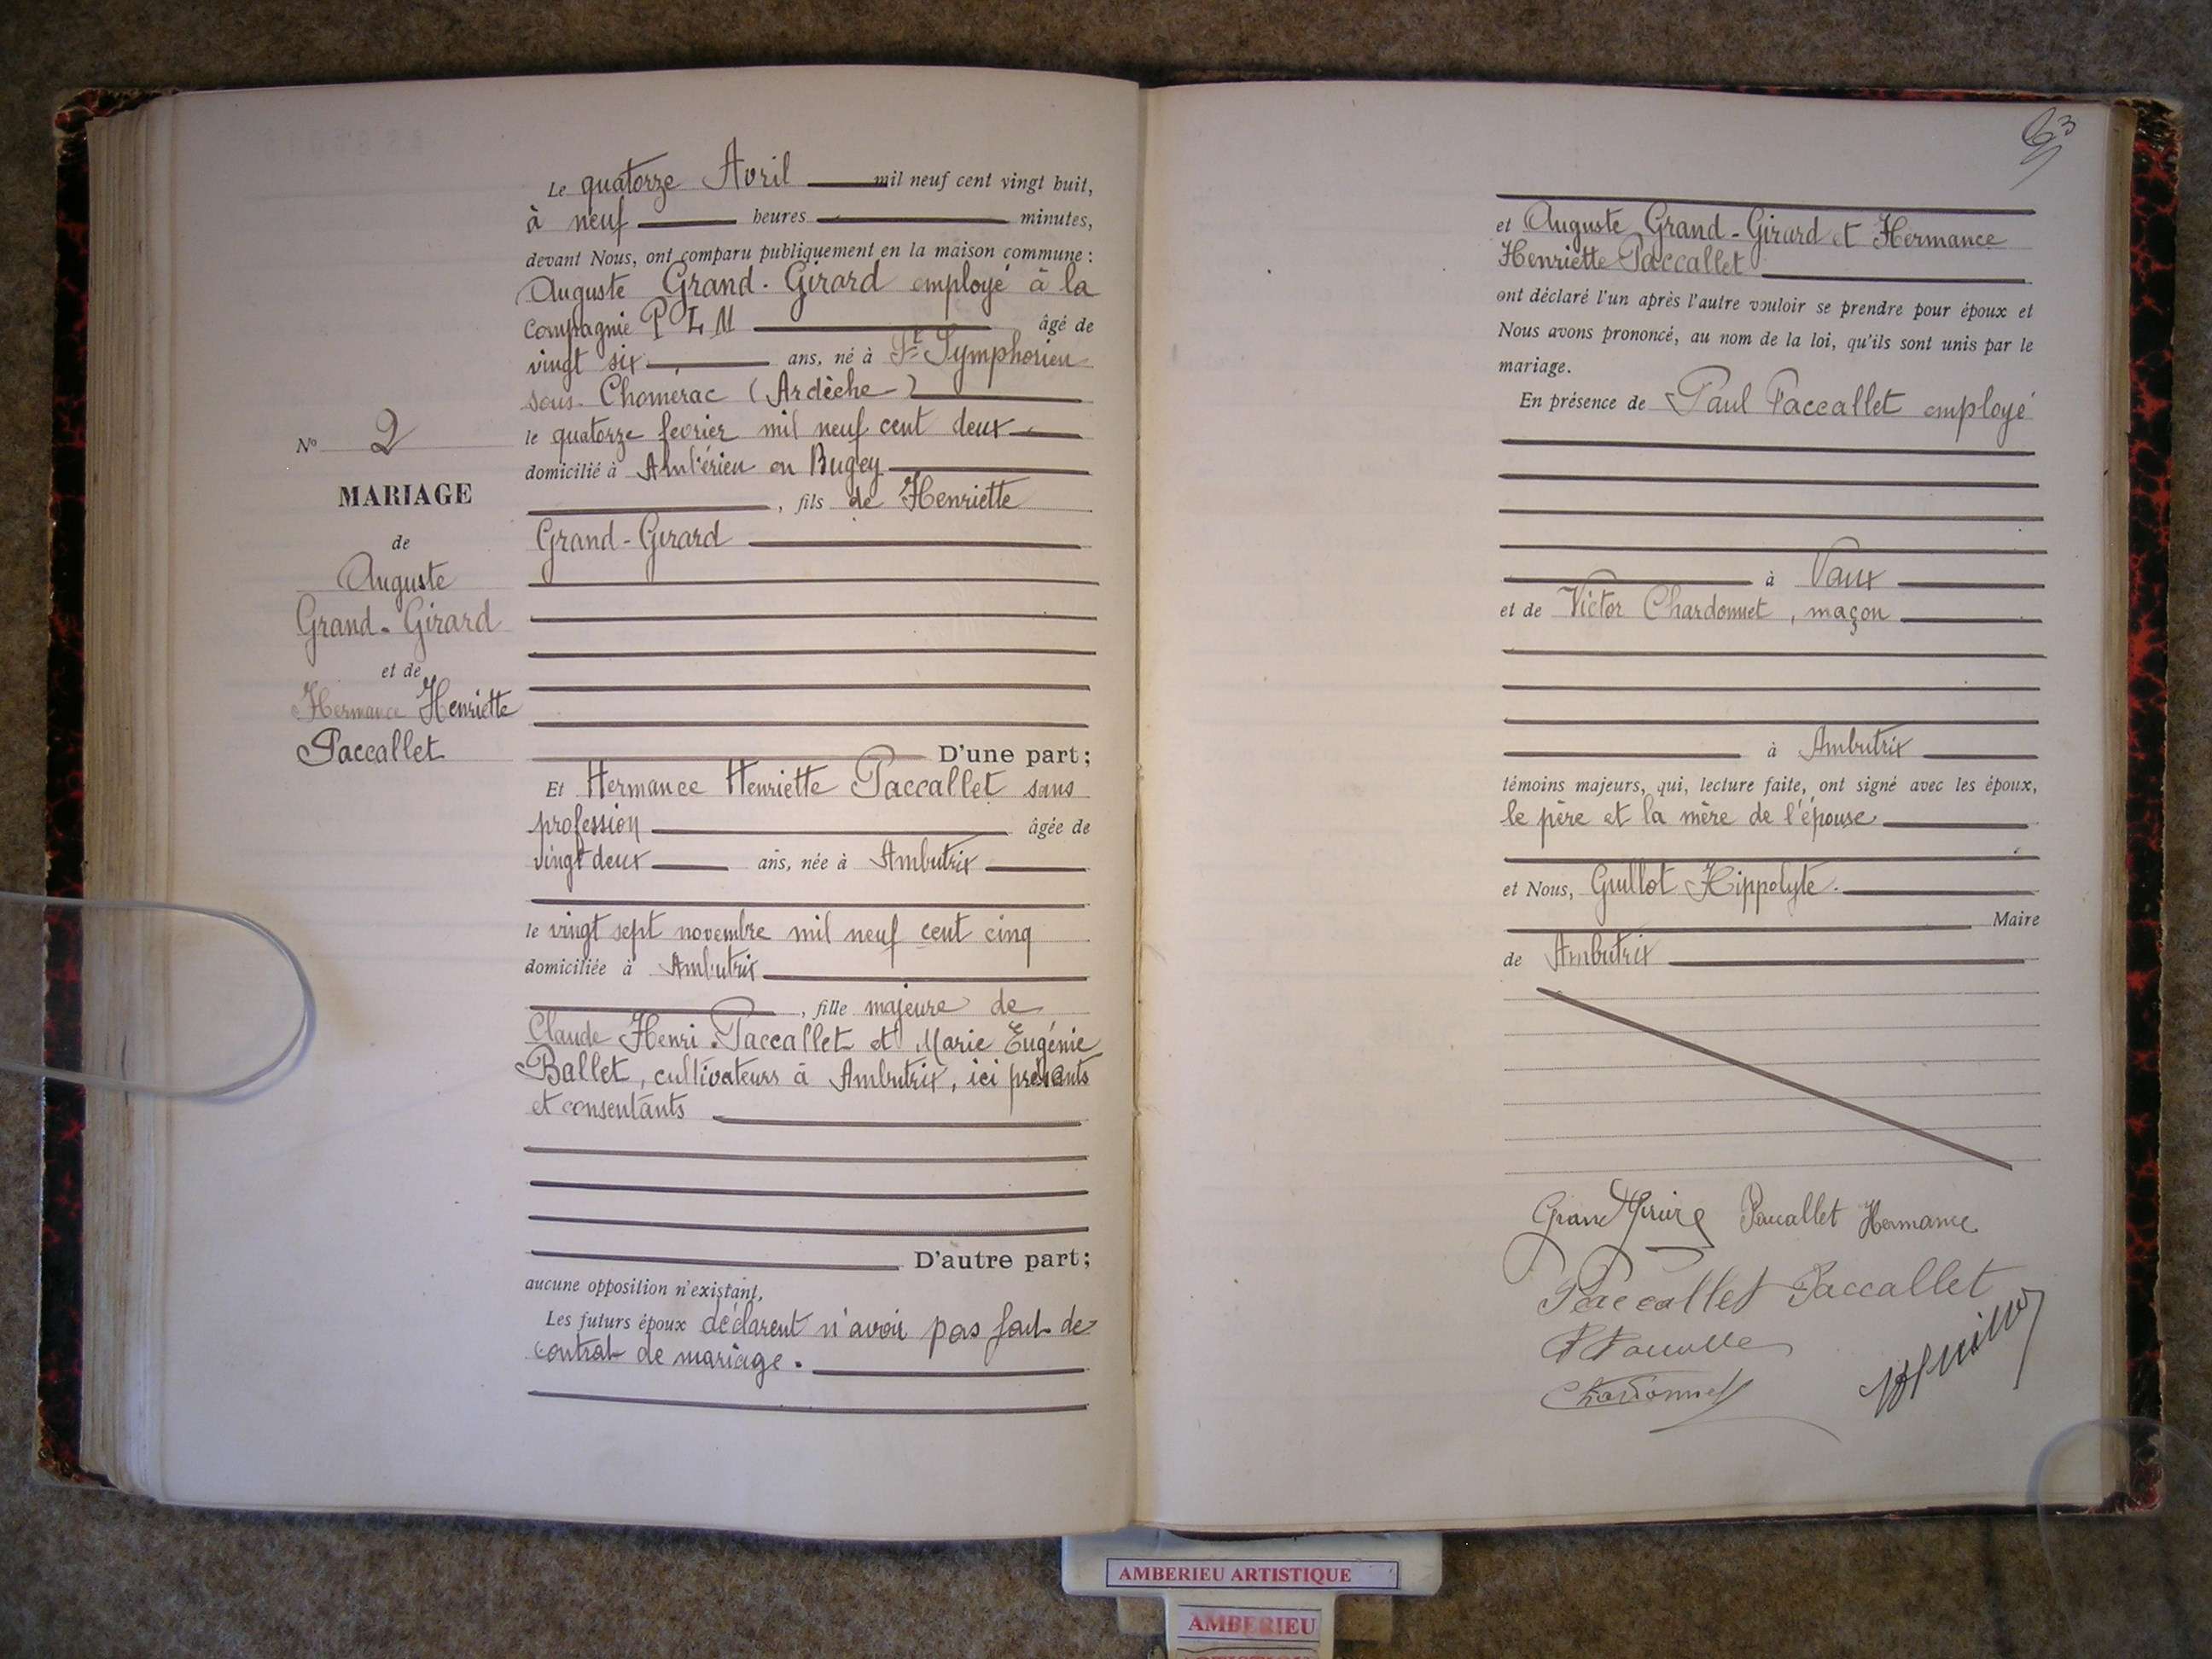 Le quatorze Avril mil neuf cent vingt huit,
à neuf heures minutes,
devant Nous, ont comparu publiquement en la maison commune :
Auguste Grand-Girard employé à la
Compagnie P L M âgé de
vingt six ans, né à St Symphorien
sous Chomérac (Ardèche)
le quatorze fevrier mil neuf cent deux
domicilié à Ambérieu en Bugey
, fils de Henriette
Grand-Girard
D'une part;
Et Hermance Henriette Paccallet sans
profession âgée de
vingt deux ans, née à Ambutrix
le vingt sept novembre mil neuf cent cinq
domiciliée à Ambutrix
, fille majeure de
Claude Henri Paccallet et Marie Eugénie
Ballet, cultivateurs à Ambutrix, ici présents
et consentants
D'autre part;
aucune opposition n'existant,
Les futurs époux déclarent n'avoir pas fait de
contrat de mariage.
No 2
MARIAGE
de
Auguste
Grand-Girard
et de
Hermance Henriette
Paccallet
63
et Auguste Grand-Girard et Hermance
Henriette Paccallet
ont déclaré l'un après l'autre vouloir se prendre pour époux et
Nous avons prononcé, au nom de la loi, qu'ils sont unis par le
mariage.
En présence de Paul Paccallet employé
à Vaux
et de Victor Chardonnet, maçon
à Ambutrix
témoins majeurs, qui, lecture faite, ont signé avec les époux,
le père et la mère de l'épouse
et Nous, Guillot Hippolyte.
Maire
de Ambutrix
Paccallet Hermance
Paccallet Paccallet
Chardonnet
AMBERIEU ARTISTIQUE
AMBERIEU
ARTISTIQUE